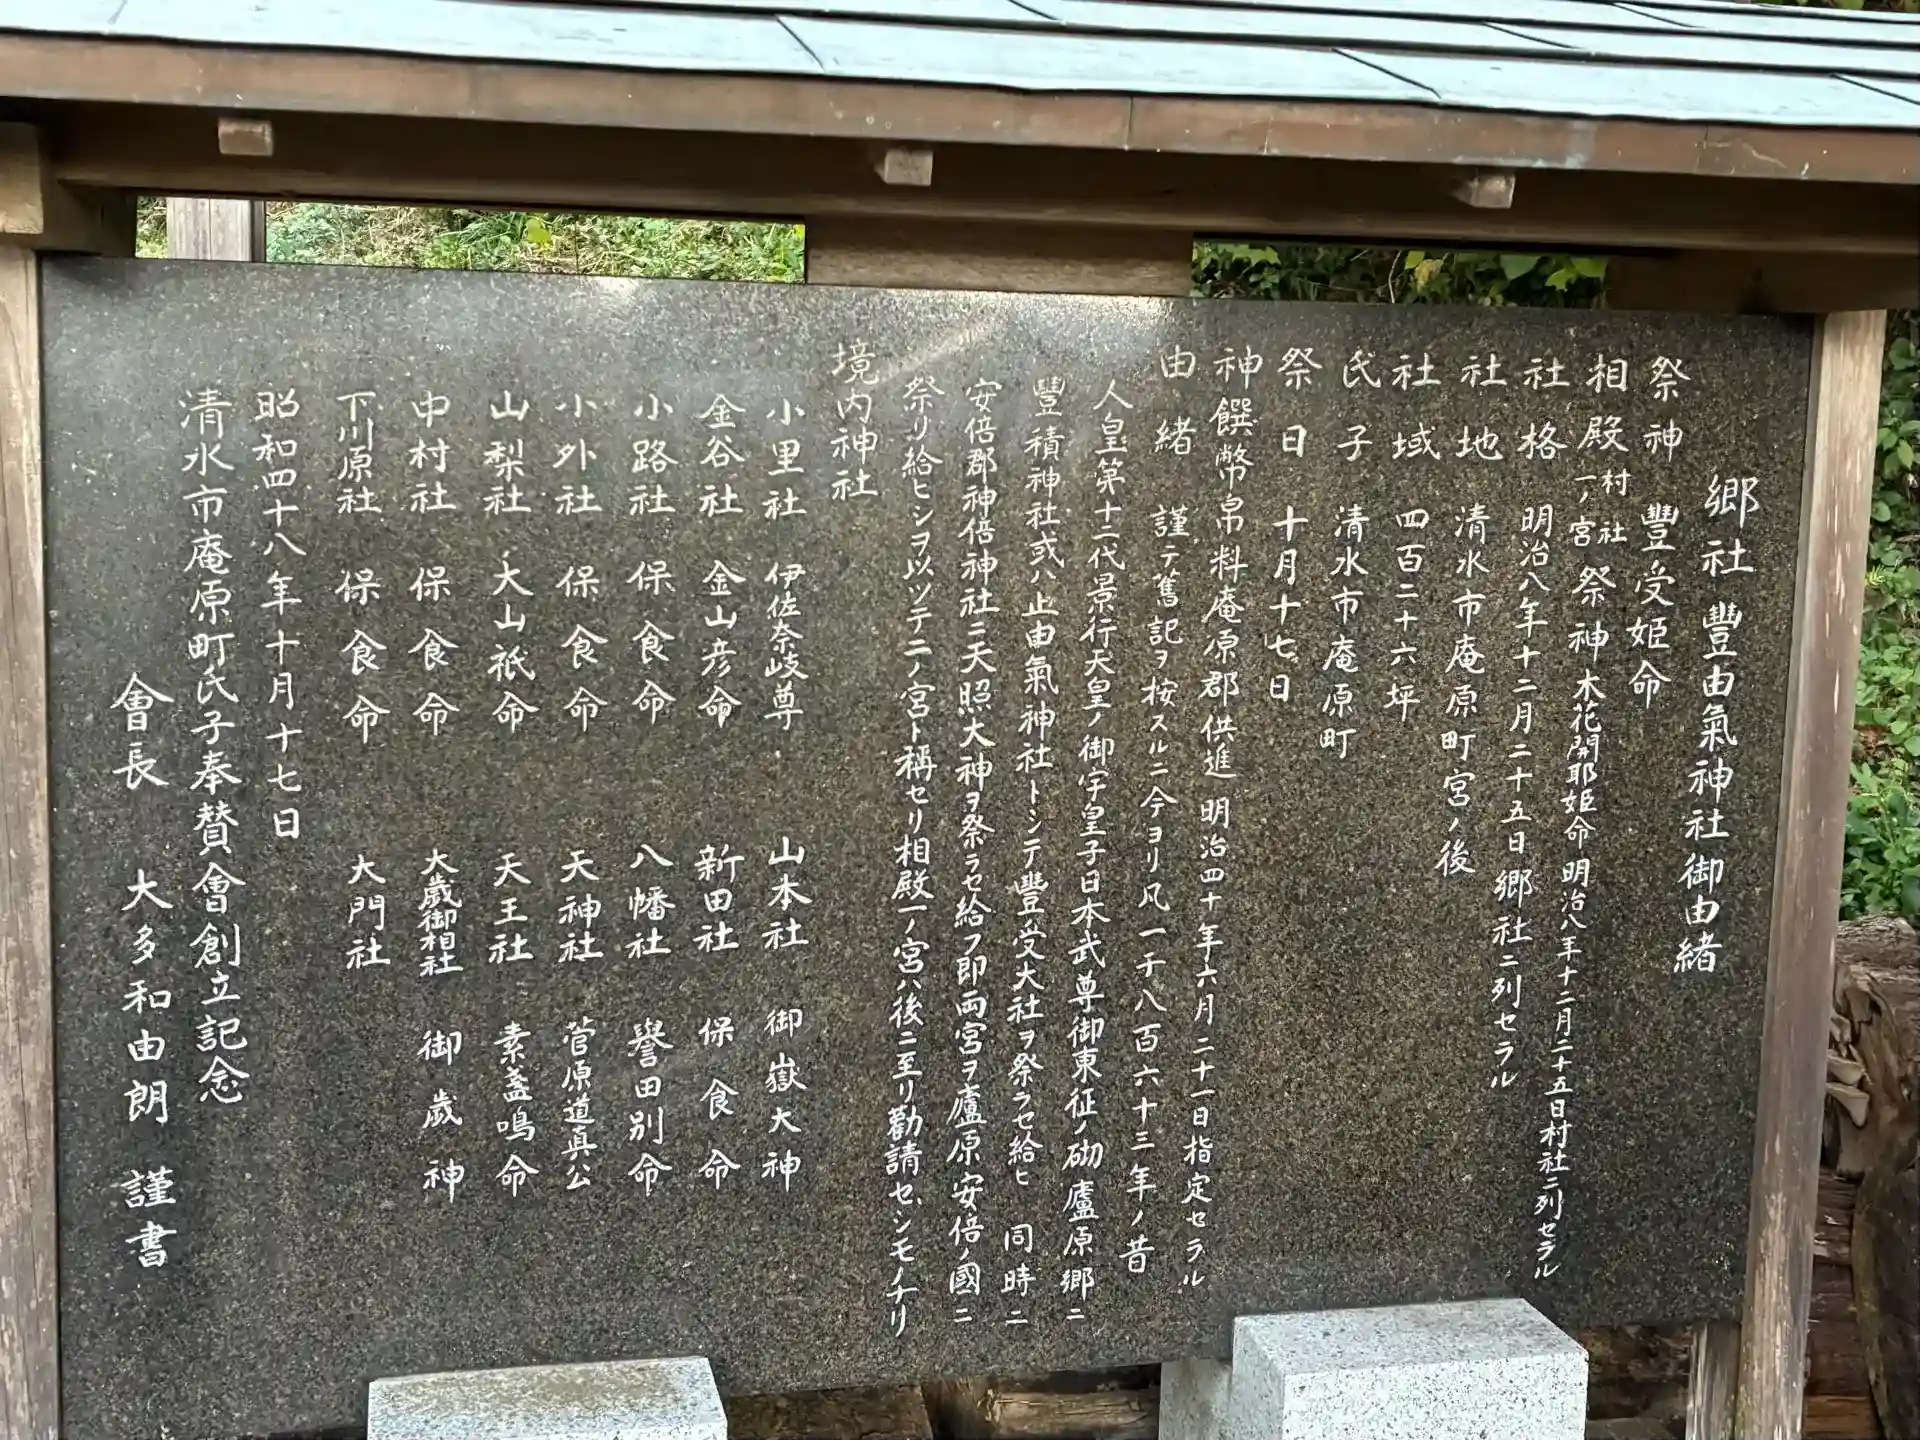 郷社 豐由氣神社御由緒
祭神 豐受姫命
相殿 村社 一ノ宮 祭神 木花開耶姫命 明治八年十二月二十五日村社ニ列セラル
社格 明治八年十二月二十五日郷社ニ列セラル
社地 清水市庵原町宮ノ後
社域 四百二十六坪
氏子 清水市庵原町
祭日 十月十七日
神饌幣帛料庵原郡供進 明治四十年六月二十一日指定セラル
由緒 謹テ舊記ヲ按スルニ今ヨリ凡一千八百六十三年ノ昔
人皇第十二代景行天皇ノ御宇皇子日本武尊御東征ノ砌廬原郷ニ
豐積神社或ハ止由氣神社トシテ豐受大社ヲ祭ラセ給ヒ 同時ニ
安倍郡神倍神社ニ天照大神ヲ祭ラセ給フ即両宮ヲ廬原安倍ノ國ニ
祭リ給ヒシヲ以ツテ二ノ宮ト稱セリ相殿一ノ宮ハ後ニ至リ勸請セシモノナリ
境内神社
小里社 伊佐奈岐尊 山本社 御嶽大神
金谷社 金山彦命 新田社 保食命
小路社 保食命 八幡社 譽田別命
小外社 保食命 天神社 菅原道真公
山梨社 大山祇命 天王社 素盞鳴命
中村社 保食命 大歳御祖社 御歳神
下川原社 保食命 大門社
昭和四十八年十月十七日
清水市庵原町氏子奉賛會創立記念
會長 大多和由朗 謹書